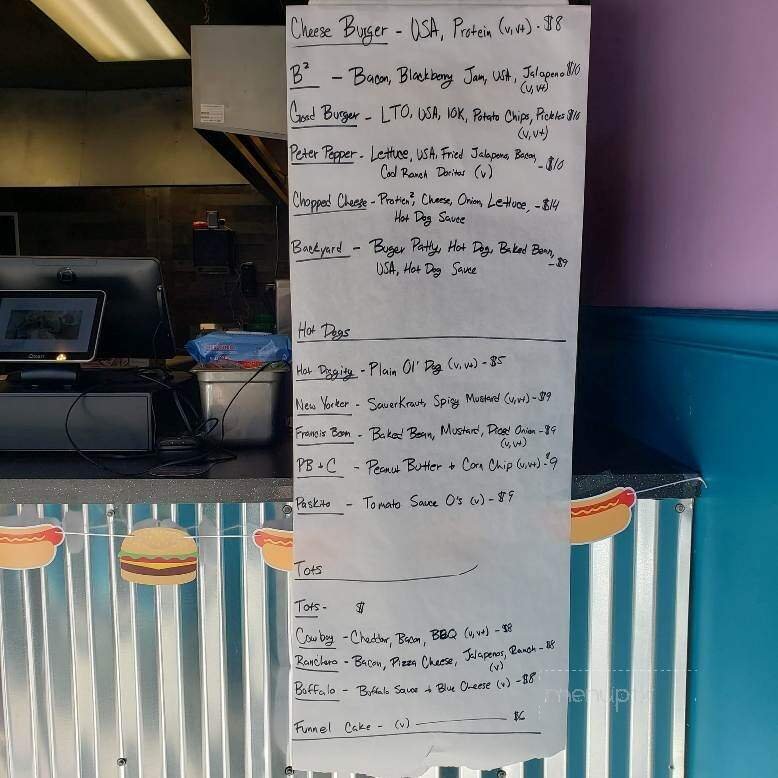 Cheese Burger - USA, Protein (v, v+) - $8
B² - Bacon, Blackberry Jam, USA, Jalapeno $10
(v, v+)
Good Burger - LTO, USA, 10K, Potato Chips, Pickles $10
(v, v+)
Peter Pepper - Lettuse, USA, Fried Jalapeno, Bacon,
Cool Ranch Doritos (v) - $10
Chopped Cheese - Protien², Cheese, Onion, Lettuce, - $14
Hot Dog Sauce
Backyard - Buger Patty, Hot Dog, Baked Bean,
USA, Hot Dog Sauce - $9
Hot Dogs
Hot Diggity - Plain Ol' Dog (v, v+) - $5
New Yorker - Sauerkraut, Spicy Mustard (v, v+) - $9
Francis Bean - Baked Bean, Mustard, Diced Onion - $9
(v, v+)
PB + C - Peanut Butter + Corn Chip (v, v+) - $9
Paskito - Tomato Sauce O's (v) - $9
Tots
Tots - $
Cowboy - Cheddar, Bacon, BBQ (v, v+) - $8
Ranchero - Bacon, Pizza Cheese, Jalapenos, Ranch - $8
(v)
Buffalo - Buffalo Sauce + Blue Cheese (v) - $8
Funnel Cake - (v) $6
menupix